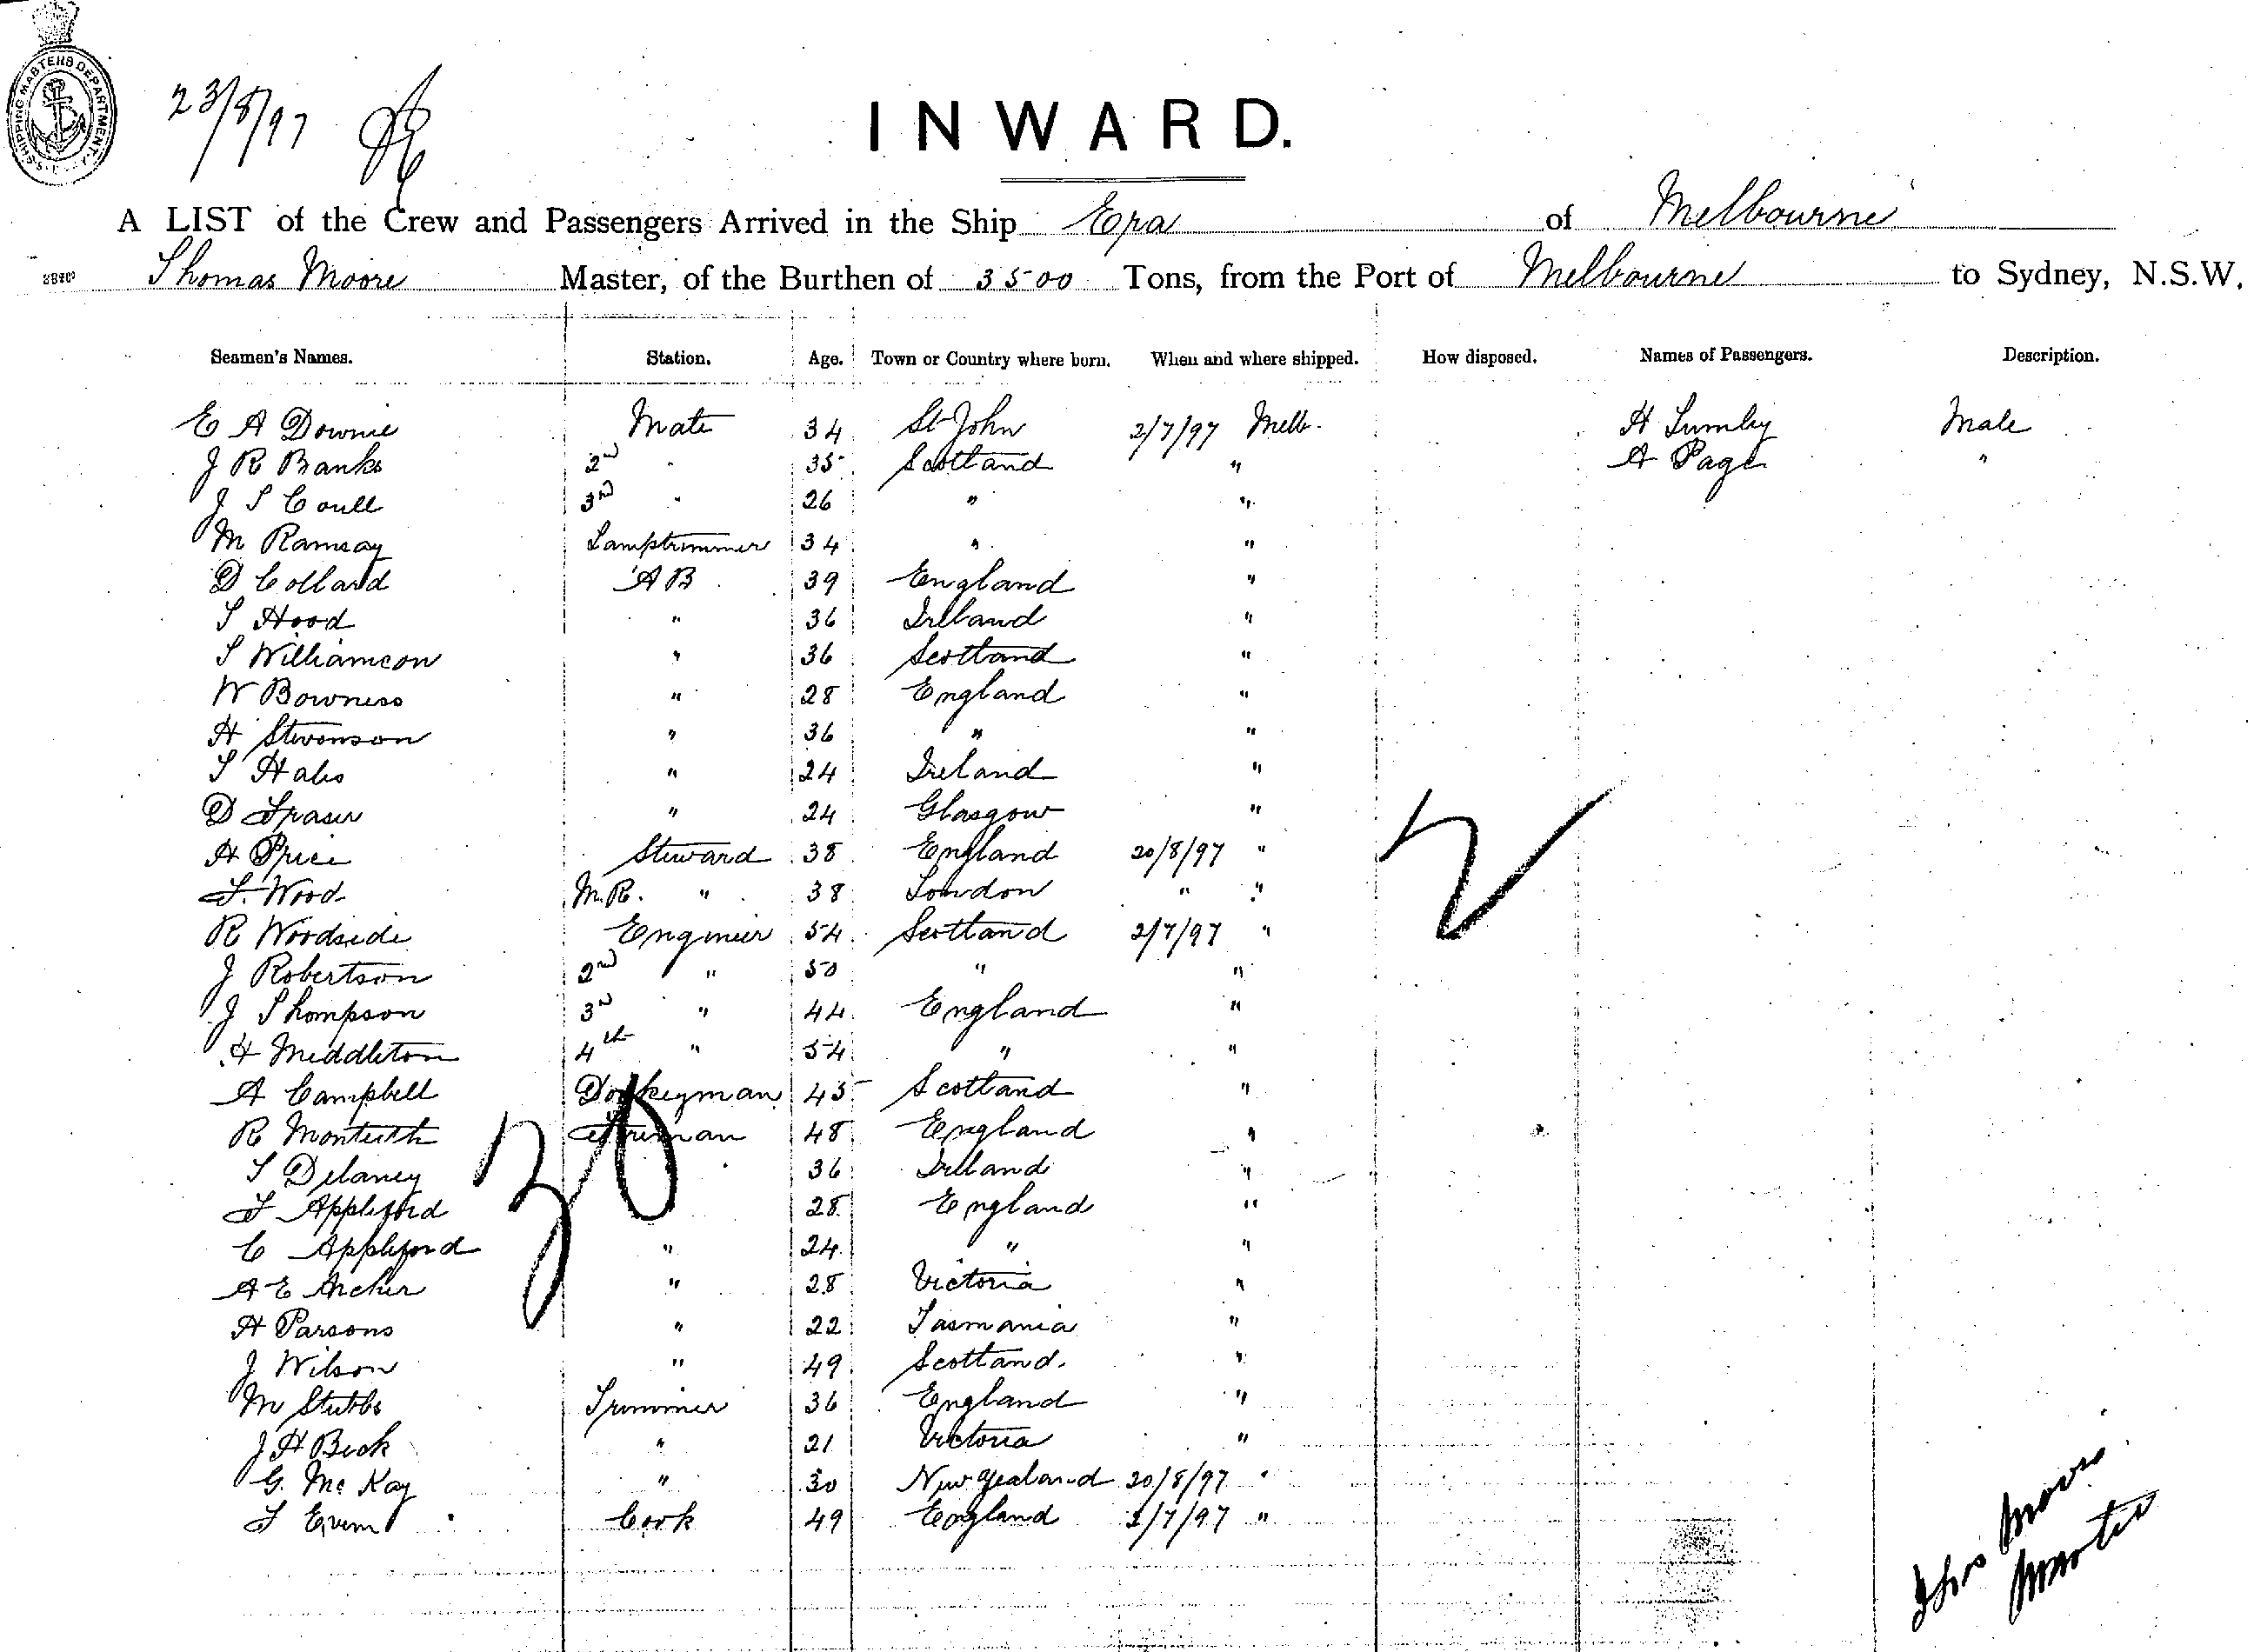 SHIPPING MASTERS DEPARTMENT
23/8/97
INWARD.
A LIST of the Crew and Passengers Arrived in the Ship Era of Melbourne
Thomas Moore Master, of the Burthen of 3500 Tons, from the Port of Melbourne to Sydney, N.S.W.
Seamen's Names. Station. Age. Town or Country where born. When and where shipped. How disposed. Names of Passengers. Description.
E A Downie Mate 34 St John 2/7/97 Melb. H Lumley Male
J R Banks 2nd " 35 Scotland " A Page "
J S Coull 3rd " 26 " "
M Ramsay Lamptrimmer 34 " "
D Collard AB 39 England "
T Hood " 36 Ireland "
T Williamson " 36 Scotland "
W Bowness " 28 England "
H Stevenson " 36 " "
T Hales " 24 Ireland "
D Fraser " 24 Glasgow "
H Price Steward 38 England 20/8/97 "
F. Wood M.R. " 38 London " "
R Woodside Engineer 54 Scotland 2/7/97 "
J Robertson 2nd " 50 " "
J Thompson 3rd " 44 England "
H Middleton 4th " 54 " "
A Campbell Donkeyman 45 Scotland "
R Monteith Fireman 48 England "
T Delaney 36 Ireland "
F Appleford 28 England "
C Appleford " 24 " "
A E Archer " 28 Victoria "
H Parsons " 22 Tasmania "
J Wilson " 49 Scotland. "
M Stubbs Trimmer 36 England "
J H Beck " 21 Victoria "
G. McKay " 30 New Zealand 20/8/97 "
F Cook 49 England 2/7/97 "
30
2
Thos Moore
Master